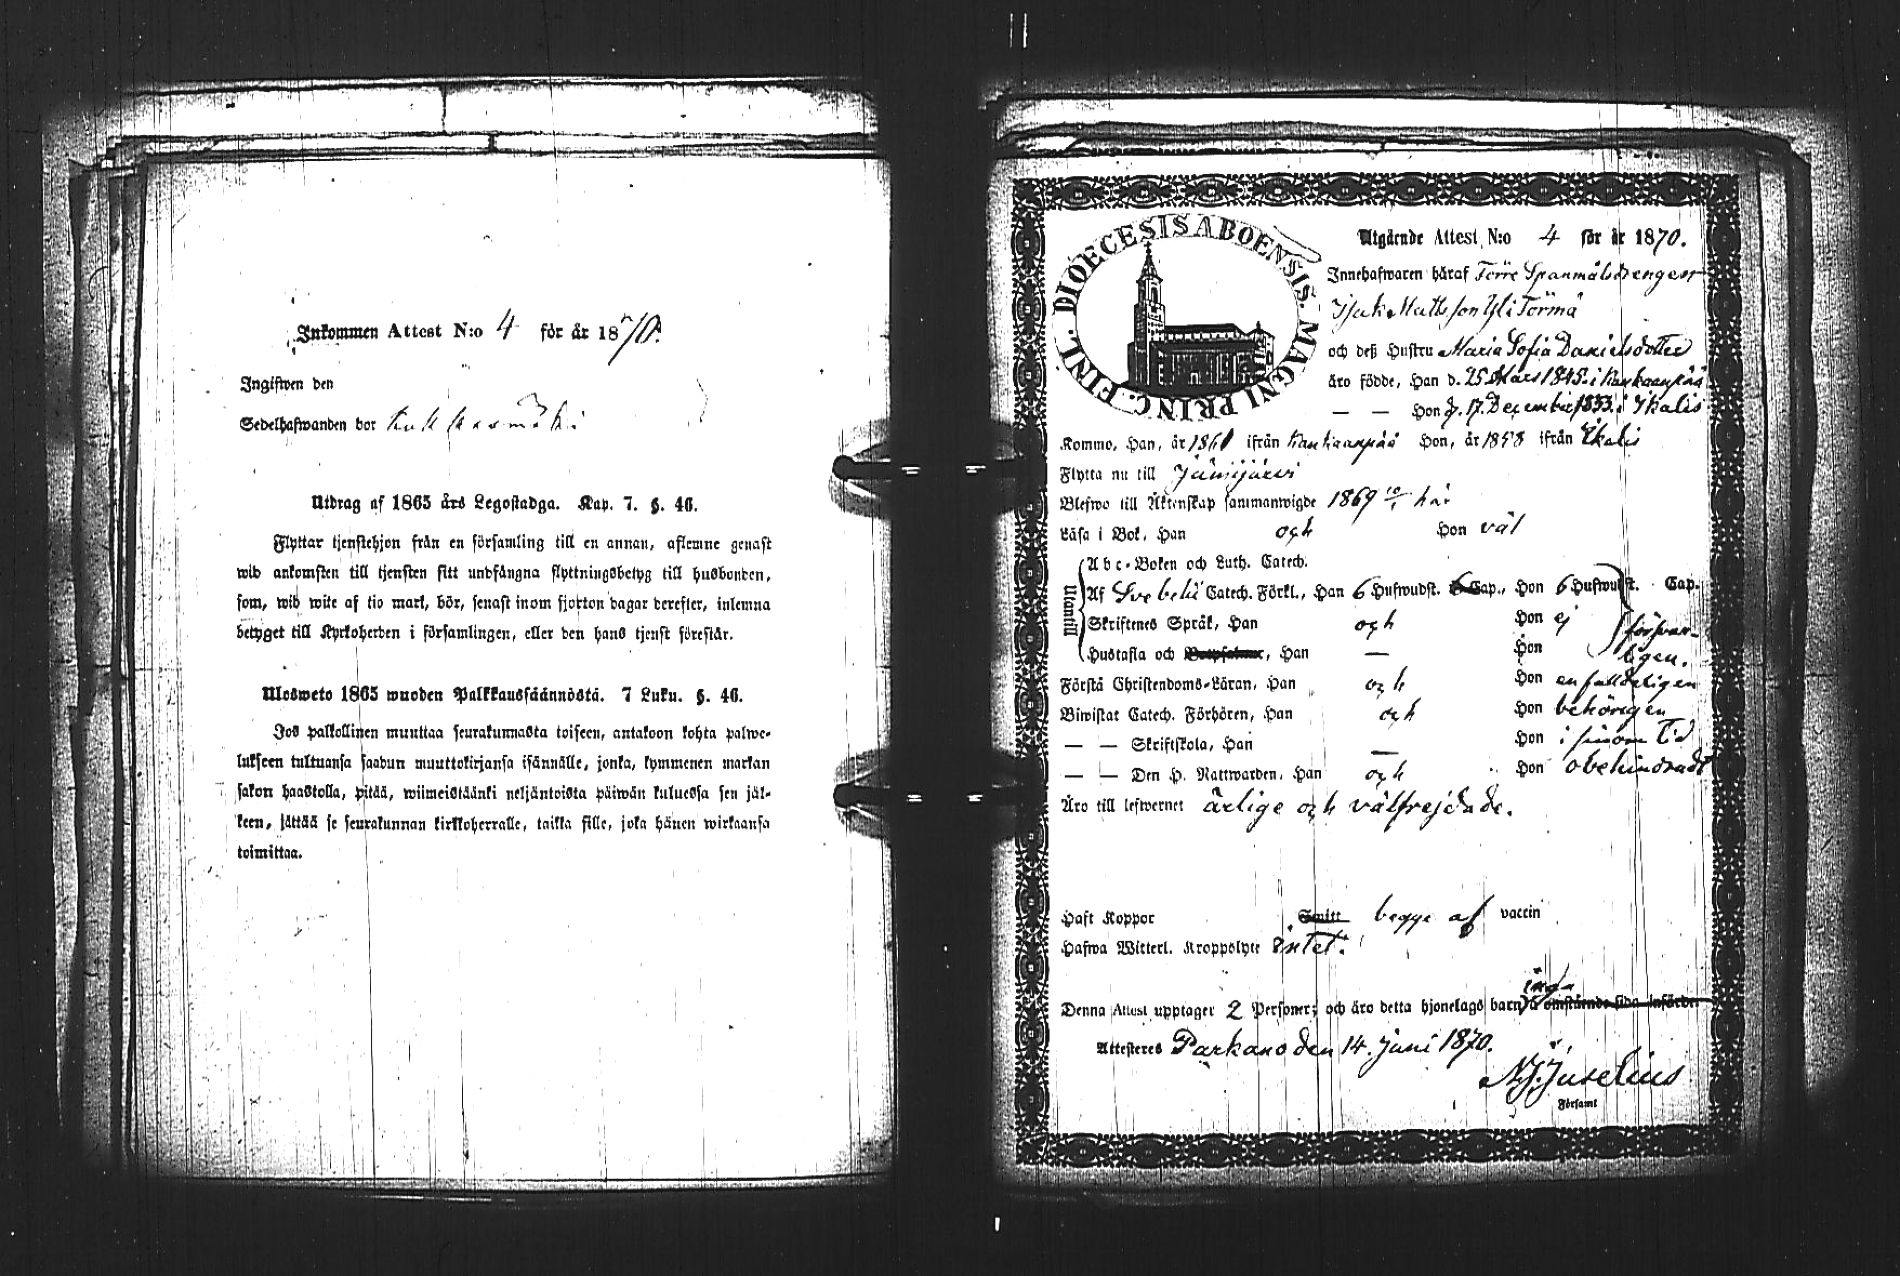 Inkommen Attest N:o 4 för år 1870.
Ingifwen den
Sedelhafwanden bor
Utdrag af 1865 års Legostadga. Kap. 7. §. 46.
Flyttar tjenstehjon från en församling till en annan, aflemne genast
wid ankomsten till tjensten sitt undfångna flyttningsbetyg till husbonden,
som, wid wite af tio mark, bör, senast inom fjorton dagar derefter, inlemna
betyget till Kyrkoherden i församlingen, eller den hans tjenst förestår.
Ulosweto 1865 wuoden Palkkaussäännöstä. 7 Luku. §. 46.
Jos palkollinen muuttaa seurakunnasta toiseen, antakoon kohta palwe-
lukseen tultuansa saadun muuttokirjansa isännälle, jonka, kymmenen markan
sakon haastolla, pitää, wiimeistäänki neljäntoista päiwän kuluessa sen jäl-
keen, jättää se seurakunnan kirkkoherralle, taikka sille, joka hänen wirkaansa
toimittaa.
DIOECESIS ABOENSIS. MAGNI PRINC. FINL.
Utgående Attest N:o 4 för år 1870.
Innehafwaren häraf Förre Spanmålsdrengen
Isak Mattsson Yli Törmä
och deß Hustru Maria Sofia Danielsdotter
äro födde, Han d. 25 Mars 1845 i Kankaanpää
— — Hon d. 17. December 1833. i Ikalis
Kommo, Han, år 1861 ifrån Kankaanpää Hon, år 1858 ifrån Ikalis
Flytta nu till Jämijärvi
Blefwo till Äktenskap sammanwigde 1869 här
Läsa i Bok, Han och Hon väl
Utantill
Abc-Boken och Luth. Catech.
Af Svebelii Catech. Förkl., Han 6 Hufwudst. Cap., Hon 6 Hufwudst. Cap.
Skriftenes Språk, Han och Hon ej
försvar-
ligen.
Hustafla och Han — Hon
Förstå Christendoms-Läran, Han och Hon enfalldeligen
Biwistat Catech. Förhören, Han och Hon behörigen
— — Skriftskola, Han — Hon i sinom tid
— — Den H. Nattwarden, Han och Hon obehindradt
Äro till lefwernet ärlige och välfrejdade.
Haft Koppor Smitt begge af vaccin
Hafwa Witterl. Kroppslyte intet.
inga
Denna Attest upptager 2 Personer; och äro detta hjonelags barn å omstående sida införde.
Attesteres Parkano den 14. Juni 1870.
N. J. Juselius
Församl